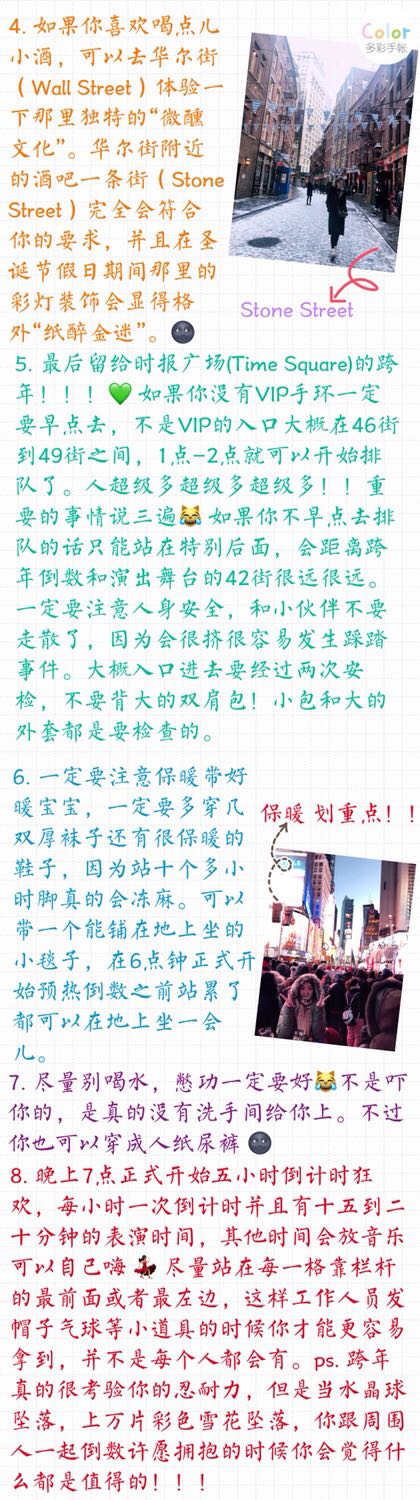 Color
多彩手帐
4. 如果你喜欢喝点儿
小酒，可以去华尔街
（Wall Street）体验一
下那里独特的“微醺
文化”。华尔街附近
的酒吧一条街（Stone
Street）完全会符合
你的要求，并且在圣
诞节假日期间那里的
彩灯装饰会显得格
外“纸醉金迷”。🌚
Stone Street
5. 最后留给时报广场(Time Square)的跨
年！！！💚 如果你没有VIP手环一定
要早点去，不是VIP的入口大概在46街
到49街之间，1点-2点就可以开始排
队了。人超级多超级多超级多！！重
要的事情说三遍😹 如果你不早点去排
队的话只能站在特别后面，会距离跨
年倒数和演出舞台的42街很远很远。
一定要注意人身安全，和小伙伴不要
走散了，因为会很挤很容易发生踩踏
事件。大概入口进去要经过两次安
检，不要背大的双肩包！小包和大的
外套都是要检查的。
6. 一定要注意保暖带好
暖宝宝，一定要多穿几
双厚袜子还有很保暖的
鞋子，因为站十个多小
时脚真的会冻麻。可以
带一个能铺在地上坐的
小毯子，在6点钟正式开
始预热倒数之前站累了
都可以在地上坐一会
儿。
保暖 划重点！！
7. 尽量别喝水，憋功一定要好😹不是吓
你的，是真的没有洗手间给你上。不过
你也可以穿成人纸尿裤 🌚
8. 晚上7点正式开始五小时倒计时狂
欢，每小时一次倒计时并且有十五到二
十分钟的表演时间，其他时间会放音乐
可以自己嗨 💃 尽量站在每一格靠栏杆
的最前面或者最左边，这样工作人员发
帽子气球等小道具的时候你才能更容易
拿到，并不是每个人都会有。ps. 跨年
真的很考验你的忍耐力，但是当水晶球
坠落，上万片彩色雪花坠落，你跟周围
人一起倒数许愿拥抱的时候你会觉得什
么都是值得的！！！